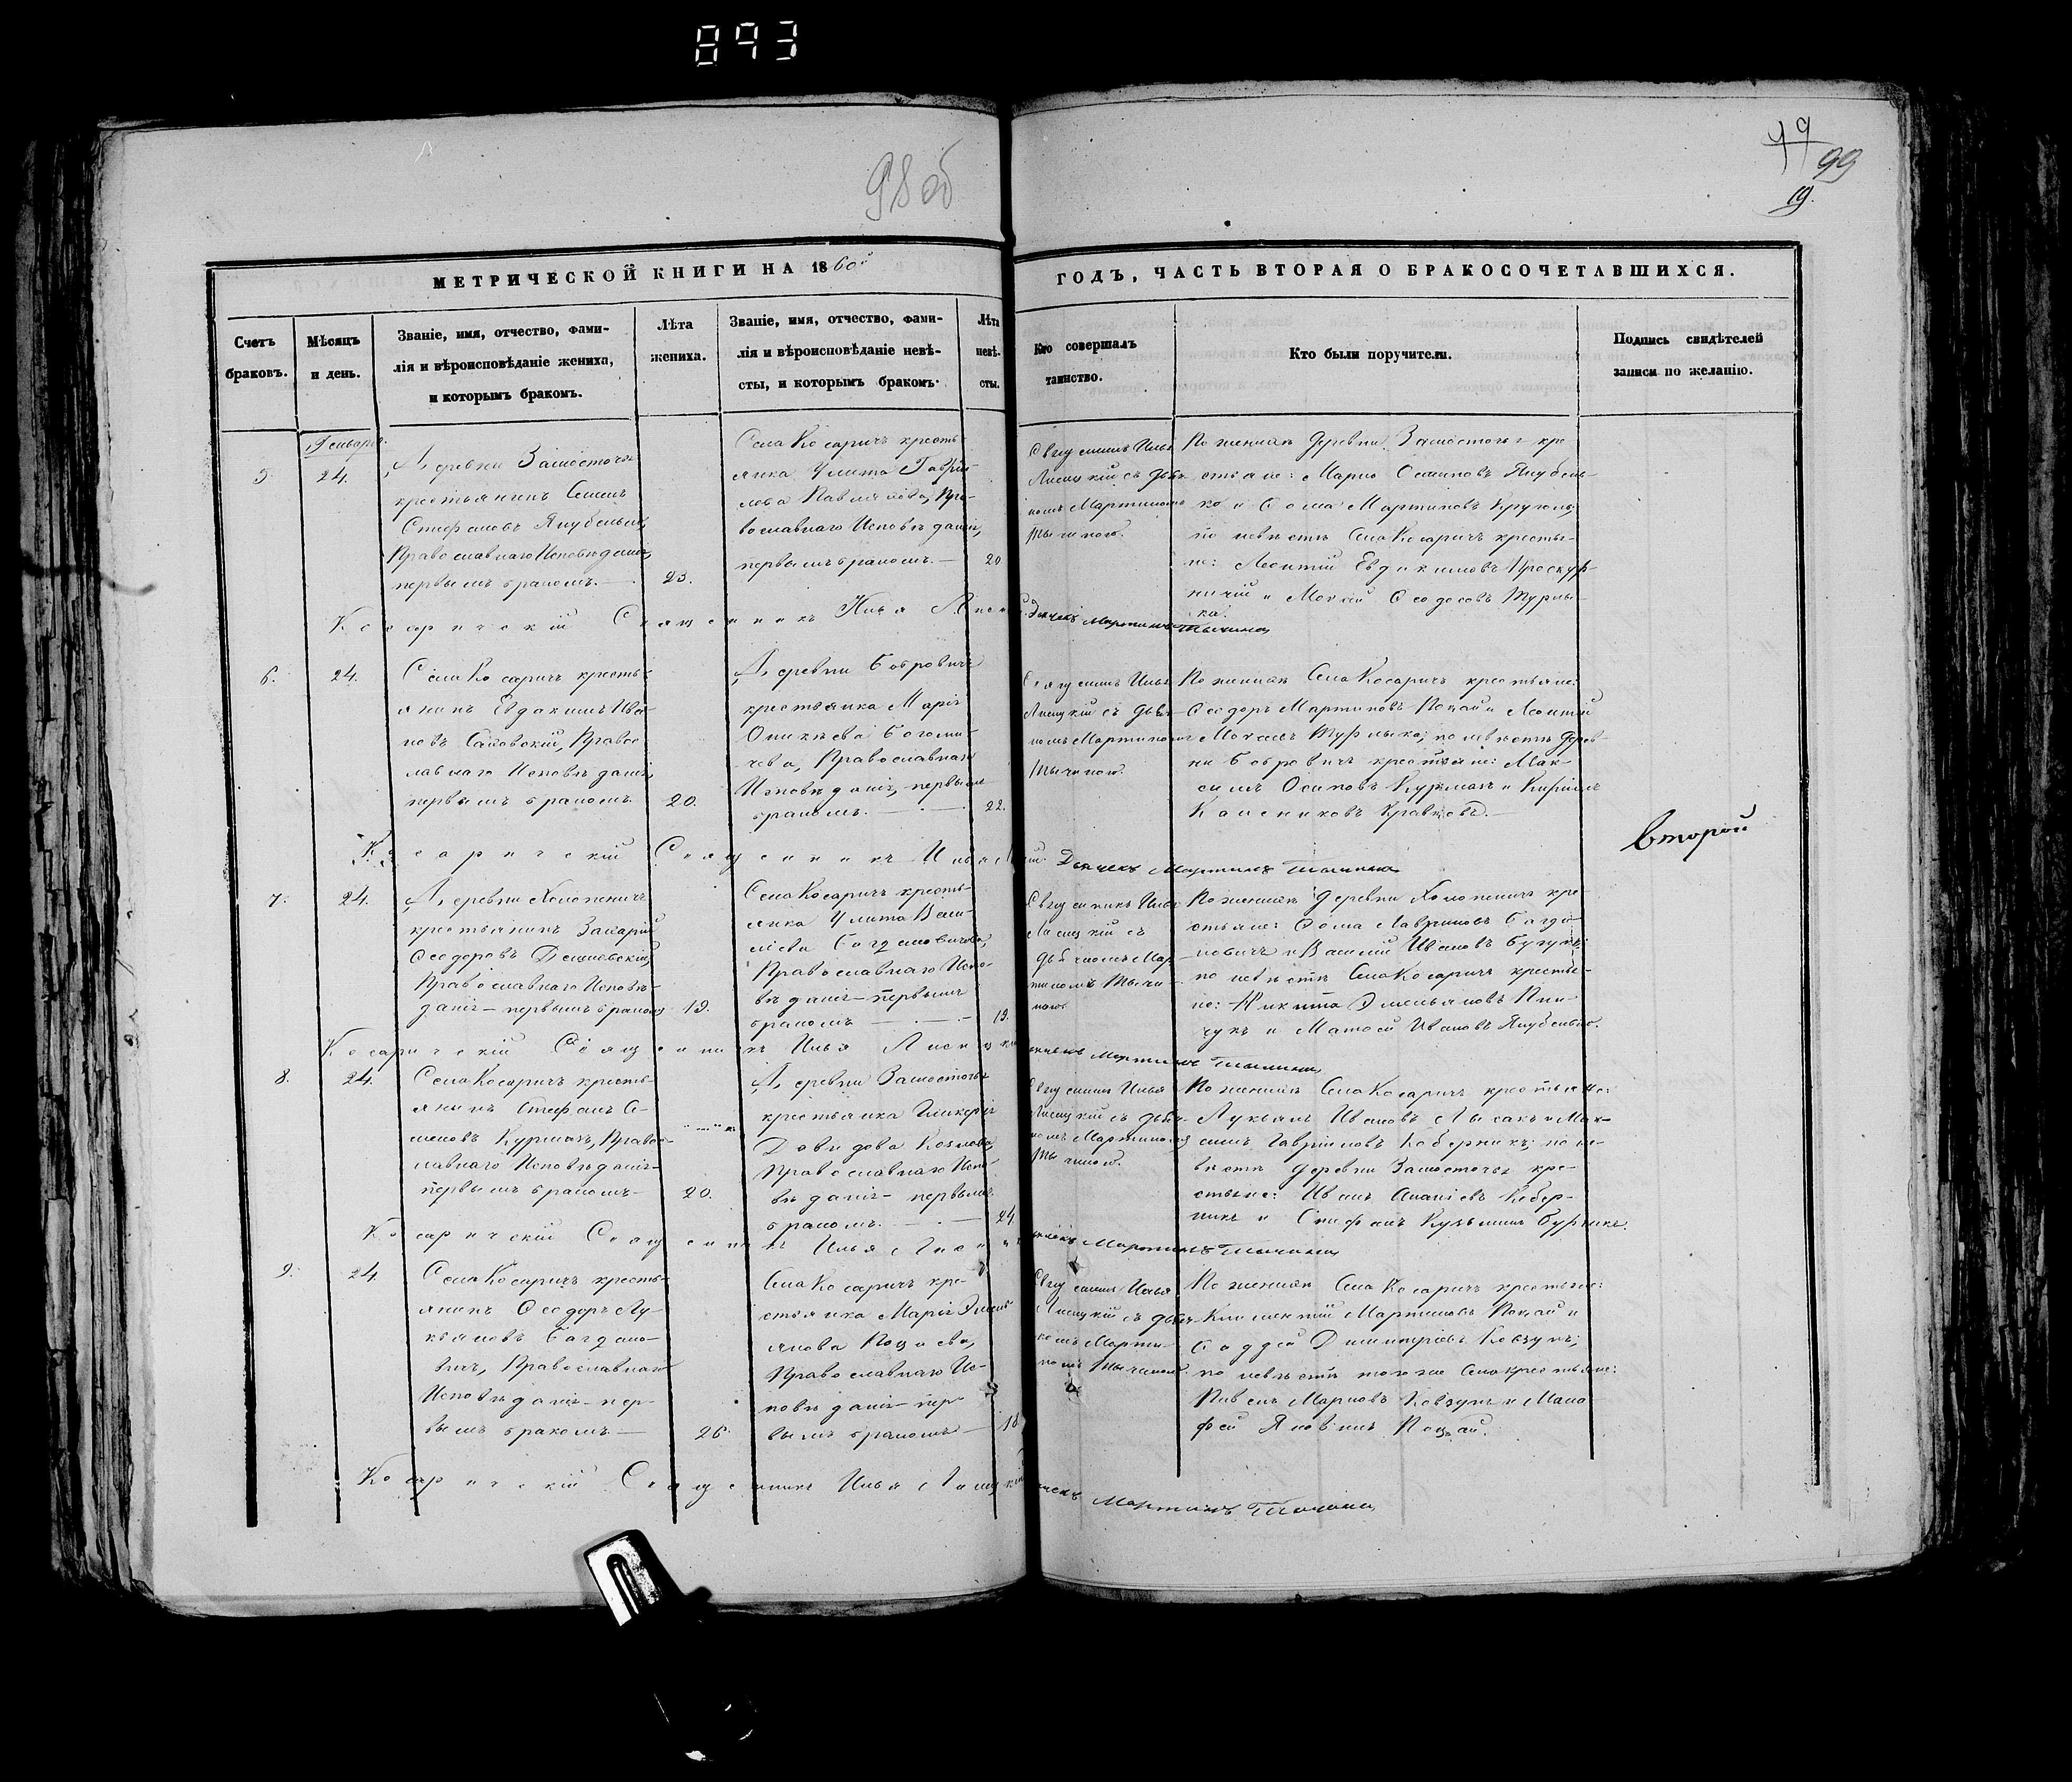 893
98 об
99
19.
МЕТРИЧЕСКОЙ КНИГИ НА 1860й
ГОДЪ, ЧАСТЬ ВТОРАЯ О БРАКОСОЧЕТАВШИХСЯ.
Счетъ
браковъ.
Мѣсяцъ
и день.
Званіе, имя, отчество, фами-
лія и вѣроисповѣданіе жениха,
и которымъ бракомъ.
Лѣта
жениха.
Званіе, имя, отчество, фами-
лія и вѣроисповѣданіе невѣ-
сты, и которымъ бракомъ.
Лѣта
невѣ-
сты.
Кто совершалъ
таинство.
Кто были поручители.
Подпись свидѣтелей
записи по желанію.
5.
Генваря
24.
Деревни Замосточья
крестьянинъ Семенъ
Стефановъ Якубенько,
Православнаго Исповѣданія,
первымъ бракомъ.
23.
Села Косаричъ кресть-
янка Улита Гаврі-
лова Павлюкова, Пра-
вославнаго Исповѣданія,
первымъ бракомъ.
20
Священникъ Илья
Лисицкій съ дьяч-
комъ Мартиномъ
Тычиною.
По женихѣ деревни Замосточья кре-
стьяне: Марко Осиповъ Якубень-
ко и Ѳома Мартиновъ Круголь;
по невѣстѣ Села Косаричъ крестья-
не: Леонтій Евдокимовъ Проскур-
ничій и Мокій Ѳеодосовъ Турлы-
ка.
Косаричскій Священникъ Илья Лисиц
Дьячекъ Мартинъ Тычина
6.
24.
Села Косаричъ кресть-
янинъ Евдокимъ Ива-
новъ Сасовскій, Правос-
лавнаго Исповѣданія,
первымъ бракомъ.
20.
Деревни Бобровичъ
крестьянка Марія
Оникѣева Богоми-
чева, Православнаго
Исповѣданія, первымъ
бракомъ.
22.
Священникъ Илья
Лисицкій съ дьяч-
комъ Мартиномъ
Тычиною.
По женихѣ Села Косаричъ крестьяне:
Ѳеодоръ Мартиновъ Поцай и Леонтій
Мокіевъ Турлыка; по невѣстѣ дерев-
ни Бобровичъ крестьяне: Мак-
симъ Осиповъ Курманъ и Кирилъ
Калениковъ Кравцовъ.
второй
Косаричскій Священникъ Илья Ли
Дьячекъ Мартинъ Тычина
7.
24.
Деревни Холопеничъ
крестьянинъ Захарій
Ѳеодоровъ Дешковскій,
Православнаго Исповѣ-
данія – первымъ бракомъ
19.
Села Косаричъ кресть-
янка Улита Васи-
лiева Богдановичова,
Православнаго Испо-
вѣданія – первымъ
бракомъ
19.
Священникъ Илья
Лисицкій съ
дьячкомъ Мар-
тиномъ Тычи-
ною.
По женихѣ деревни Холопеничъ кре-
стьяне: Ѳома Лавриновъ Богда-
новичъ и Василій Ивановъ Бугукъ;
по невѣстѣ Села Косаричъ крестья-
не: Никита Емельяновъ Пин-
чукъ и Матѳей Ивановъ Якубенько.
Косаричскій Священникъ Илья Лисицк
Мартинъ Тычина
8.
24.
Села Косаричъ кресть-
янинъ Стефанъ Се-
меновъ Курманъ, Правос-
лавнаго Исповѣданія –
первымъ бракомъ –
20.
Деревни Замосточья
крестьянка Гликерія
Давидова Козлова,
Православнаго Испо-
вѣданія – первымъ
бракомъ.
24.
Священникъ Илья
Лисицкій съ дьяч-
комъ Мартиномъ
Тычиною.
По женихѣ Села Косаричъ крестьяне:
Лукьянъ Ивановъ Лысакъ и Мак-
симъ Гавріиловъ Коберникъ; по не-
вѣстѣ деревни Замосточья кре-
стьяне: Иванъ Ананіевъ Кобер-
никъ и Стефанъ Кузьминъ
Косаричскій Священникъ Илья Лисиц
Мартинъ Тычина
9.
24.
Села Косаричъ кресть-
янинъ Ѳеодоръ Лу-
кьяновъ Богдано-
вичъ, Православнаго
Исповѣданія – пер-
вымъ бракомъ –
26.
Села Косаричъ кре-
стьянка Марія Емель-
янова Поцаева,
Православнаго Ис-
повѣданія – пер-
вымъ бракомъ –
18
Священникъ Илья
Лисицкій съ дьяч-
комъ Марти-
номъ Тычиною.
По женихѣ Села Косаричъ крестьяне:
Климентій Мартиновъ Поцай и
Ѳаддей Димитріевъ Ковзунъ;
по невѣстѣ того же Села крестьяне:
Марковъ Ковзунъ и Мало-
фей Яковинъ Поцай.
Косаричскій Священникъ Илья Лисицкій
Мартинъ Тычина